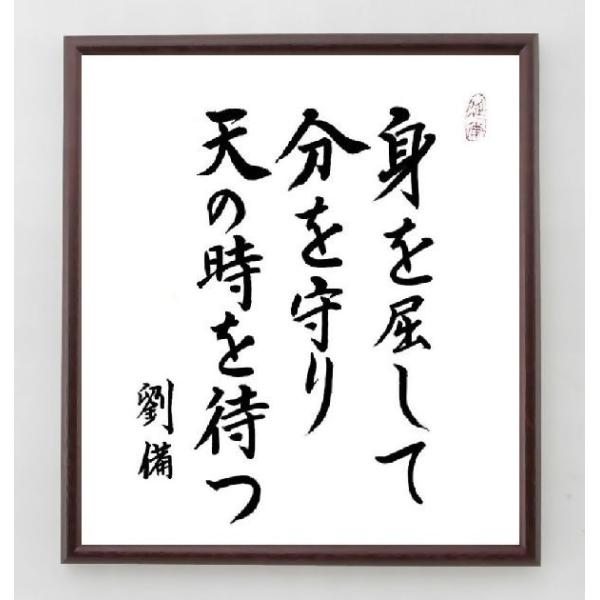 身を屈して
分を守り
天の時を待つ
劉備